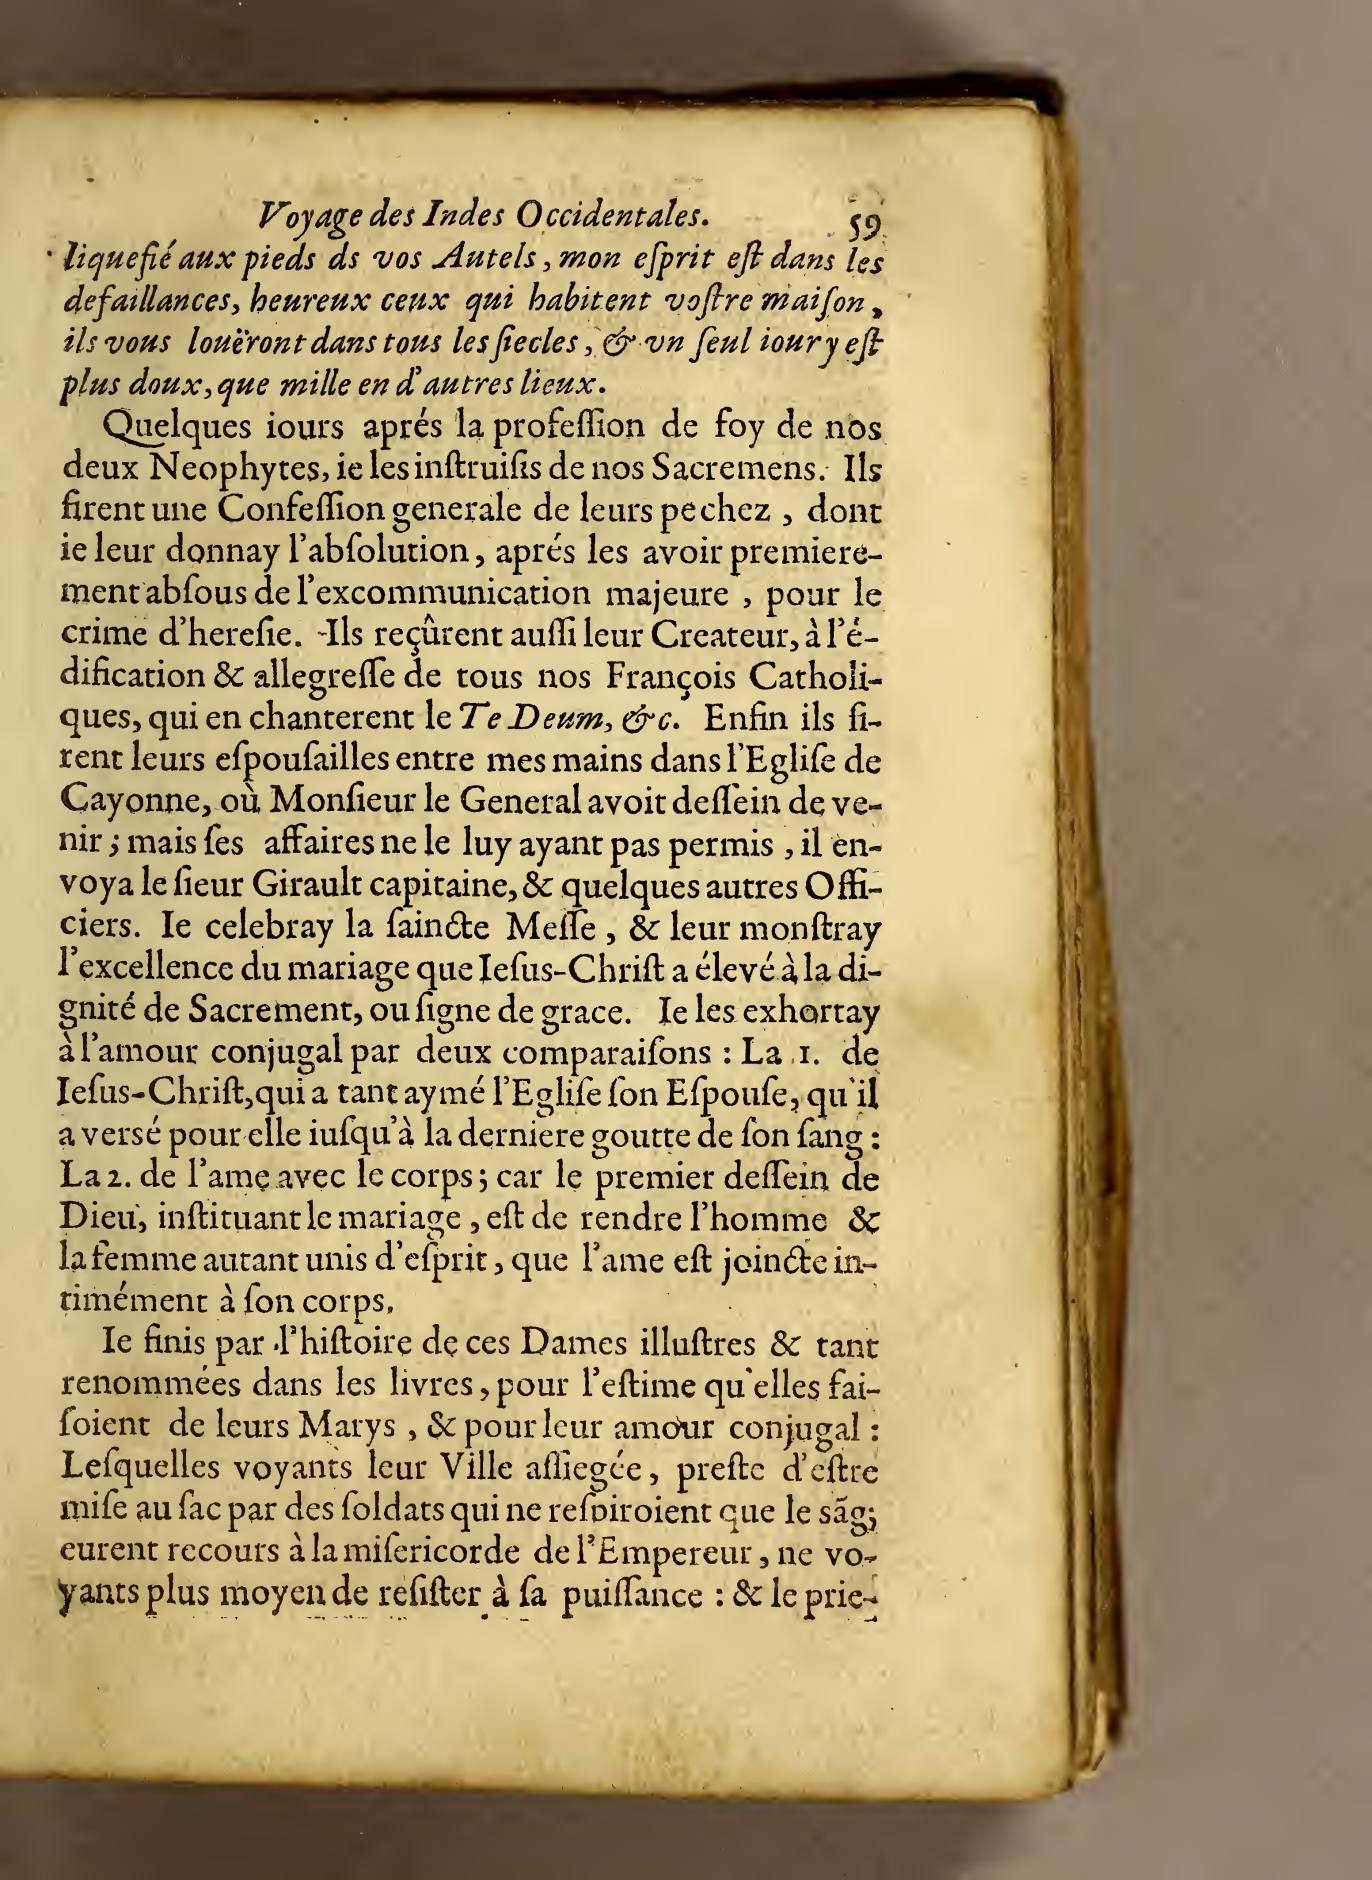 Voyage des Indes Occidentales. 59
liquefié aux pieds ds vos Autels, mon eſprit eſt dans les
defaillances, heureux ceux qui habitent voſtre maiſon,
ils vous louëront dans tous les ſiecles, & vn ſeul iour y eſt
plus doux, que mille en d'autres lieux.
Quelques iours aprés la profeſſion de foy de nos
deux Neophytes, ie les inſtruiſis de nos Sacremens. Ils
firent une Confeſſion generale de leurs pechez, dont
ie leur donnay l'abſolution, aprés les avoir premiere-
ment abſous de l'excommunication majeure, pour le
crime d'hereſie. Ils reçûrent auſſi leur Createur, à l'é-
dification & allegreſſe de tous nos François Catholi-
ques, qui en chanterent le Te Deum, &c. Enfin ils fi-
rent leurs eſpouſailles entre mes mains dans l'Egliſe de
Cayonne, où Monſieur le General avoit deſſein de ve-
nir; mais ſes affaires ne le luy ayant pas permis, il en-
voya le ſieur Girault capitaine, & quelques autres Offi-
ciers. Ie celebray la ſaincte Meſſe, & leur monſtray
l'excellence du mariage que Ieſus-Chriſt a élevé à la di-
gnité de Sacrement, ou ſigne de grace. Ie les exhortay
à l'amour conjugal par deux comparaiſons : La 1. de
Ieſus-Chriſt, qui a tant aymé l'Egliſe ſon Eſpouſe, qu'il
a versé pour elle iuſqu'à la derniere goutte de ſon ſang :
La 2. de l'ame avec le corps; car le premier deſſein de
Dieu, inſtituant le mariage, eſt de rendre l'homme &
la femme autant unis d'eſprit, que l'ame eſt joincte in-
timément à ſon corps.
Ie finis par l'hiſtoire de ces Dames illuſtres & tant
renommées dans les livres, pour l'eſtime qu'elles fai-
ſoient de leurs Marys, & pour leur amour conjugal :
Leſquelles voyants leur Ville aſſiegée, preſte d'eſtre
miſe au ſac par des ſoldats qui ne reſpiroient que le sãg;
eurent recours à la miſericorde de l'Empereur, ne vo-
yants plus moyen de reſiſter à ſa puiſſance : & le prie-